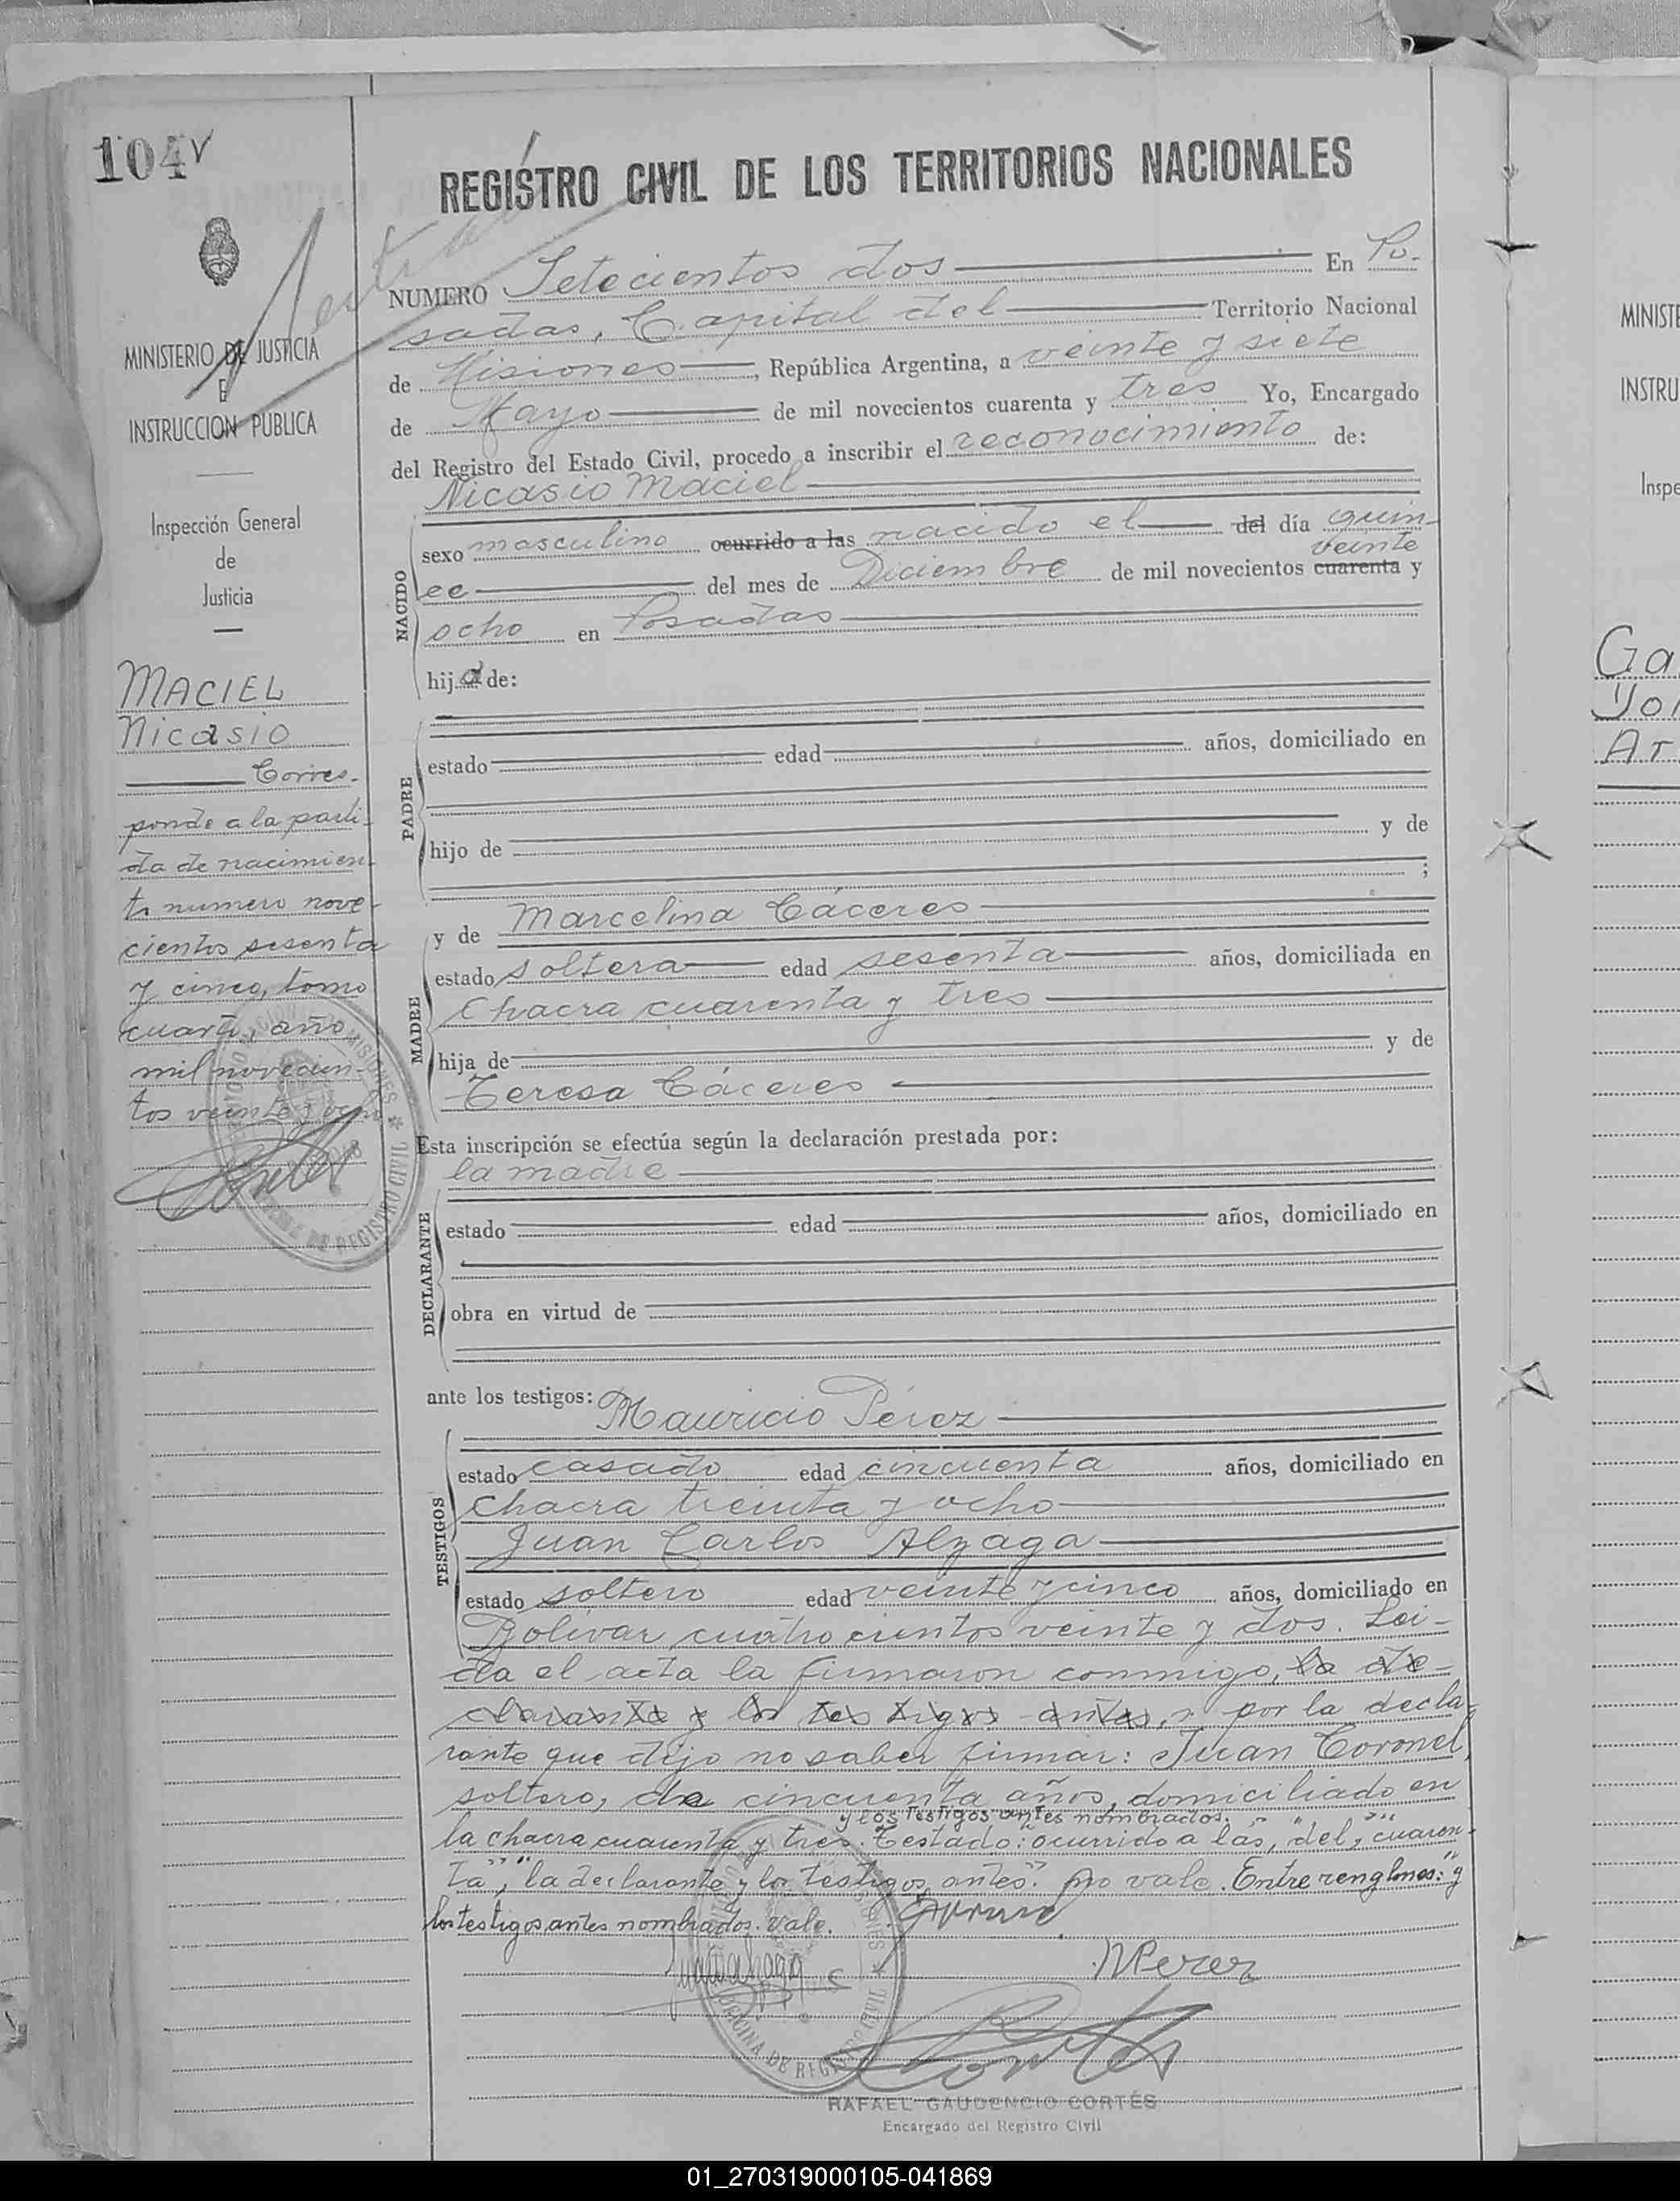 104v
REGISTRO CIVIL DE LOS TERRITORIOS NACIONALES
MINISTERIO DE JUSTICIA
E
INSTRUCCION PUBLICA
Inspección General
de
Justicia
MACIEL
Nicasio
Corres-
ponde a la parti-
da de nacimien-
to numero nove-
cientos sesenta
y cinco, tomo
cuarto, año
mil novecien-
tos veinte y ocho
NUMERO Setecientos dos En Po-
sadas, Capital del Territorio Nacional
de Misiones, República Argentina, a veinte y siete
de Mayo de mil novecientos cuarenta y tres Yo, Encargado
del Registro del Estado Civil, procedo a inscribir el reconocimiento de:
Nicasio Maciel
NACIDO
sexo masculino ocurrido a las nacido el del día quin-
veinte
ce del mes de Diciembre de mil novecientos cuarenta y
ocho en Posadas
hijo de:
PADRE
estado edad años, domiciliado en
hijo de y de
;
MADRE
y de Marcelina Cáceres
estado soltera edad sesenta años, domiciliada en
Chacra cuarenta y tres
hija de y de
Teresa Cáceres
Esta inscripción se efectúa según la declaración prestada por:
la madre
DECLARANTE
estado edad años, domiciliado en
obra en virtud de
ante los testigos: Mauricio Pérez
TESTIGOS
estado casado edad cincuenta años, domiciliado en
Chacra treinta y ocho
Juan Carlos Alzaga
estado soltero edad veinte y cinco años, domiciliado en
Bolivar cuatrocientos veinte y dos. Lei-
da el acta la firmaron conmigo, la de-
clarante y los testigos antes, por la decla-
rante que dijo no saber firmar: Juan Coronel,
soltero, de cincuenta años, domiciliado en
y los testigos antes nombrados.
la chacra cuarenta y tres. Testado: "ocurrido a las", "del", "cuaren-
ta", "la declarante y los testigos antes". no vale. Entre renglones: "y
los testigos antes nombrados. Vale.
MPerez
Cortés
RAFAEL GAUDENCIO CORTÉS
Encargado del Registro Civil
OFICINA DE REGISTRO CIVIL
MINISTE
INSTRU
Inspe
Ga
01_270319000105-041869